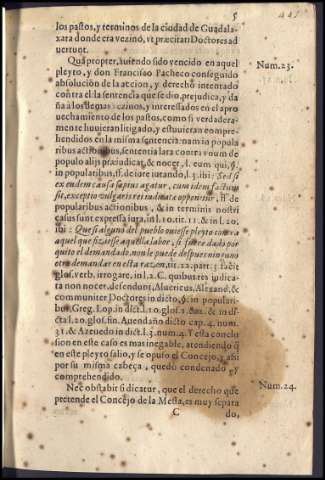 5
los pastos, y terminos de la ciudad de Guadala-
xara donde era vezino, vt præcitati Doctores ad
uertunt.
Quapropter, auiendo sido vencido en aquel
pleyto, y don Francisco Pacheco conseguido
absolucion de la accion, y derecho intentado
contra el: la sentencia que se dio, prejudica, y da
ña a los demas vezinos, y interessados en el apro
uechamiento de los pastos, como si verdadera-
mente huuieran litigado, y estuuieran compre-
hendidos en la misma sentencia: nam in popula
ribus actionibus, sententia lata contra vnum de
populo alijs præiudicat, & nocet, l. eum qui, §.
in popularibus, ff. de iure iurando, l. 3. ibi: Sed si
ex eadem causa sæpius agatur, cum idem factum
sit, exceptio vulgaris rei iudicatæ opponitur, ff. de
popularibus actionibus, & in terminis nostri
casus sunt expressa iura, in l. 10. tit. 11. & in l. 20.
ibi: Que si alguno del pueblo ouiesse pleyto contra
aquel que fiziesse aquella labor, si fuere dado por
quito el demandado, non le puede despues ninguno
otro demandar en esta razon, tit. 22. part. 3. facit
glos. verb. irrogare, in l. 2. C. quibus res iudica-
ta non nocet, defendunt, Aluericus, Alexand. &
communiter Doctores in dicto, §. in populari-
bus, Greg. Lop. in dict. l. 10. glos. 2. & in di-
cta l. 20. glos. fin. Auendaño dicto cap. 4. num.
31. & Azeuedo in dict. l. 3. num. 4. Y esta conclu
sion en este caso es mas inegable, atendiendo q̃
en este pleyto salio, y se opuso el Concejo, y assi
por su misma cabeça, quedò condenado y
comprehendido.
Nec obstabit si dicatur, que el derecho que
pretende el Concejo de la Mesta, es muy separa
C do,
Num. 23.
Num. 24.